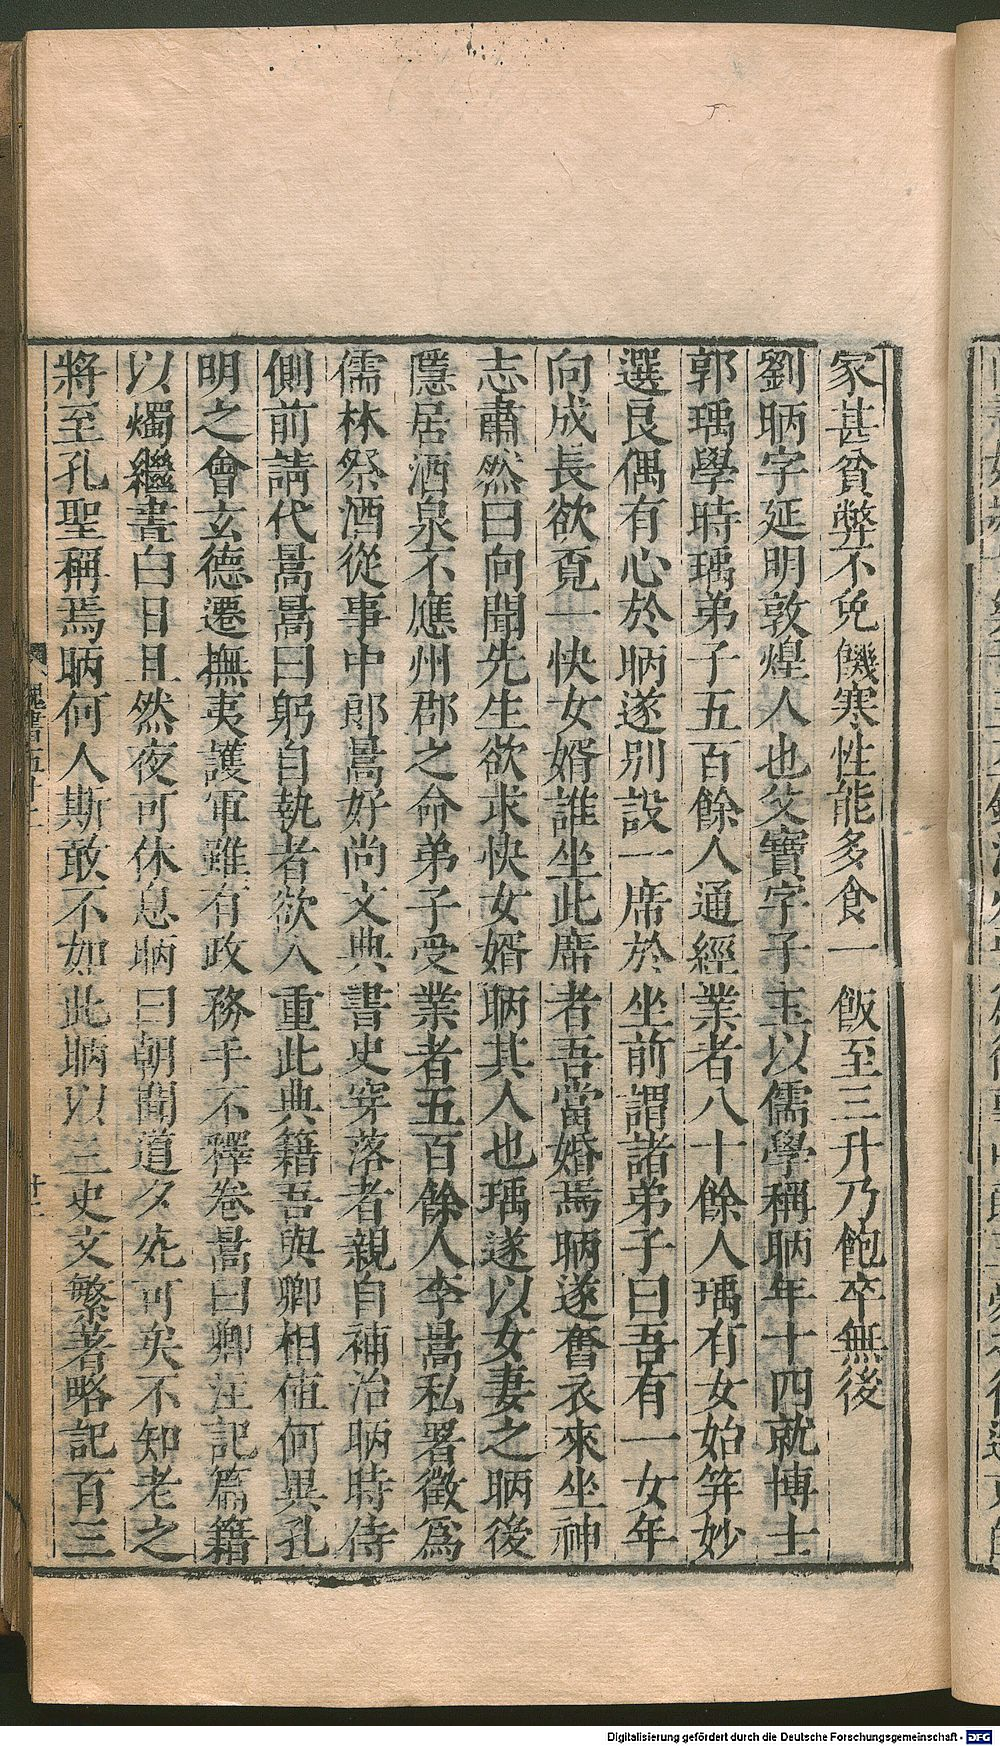 家甚貧弊不免飢寒性能多食一飯至三升乃飽卒無後
劉昞字延明敦煌人也父寶字子玉以儒學稱昞年十四就博士
郭瑀學時瑀弟子五百餘人通經業者八十餘人瑀有女始笄妙
選良偶有心於昞遂別設一席於坐前謂諸弟子曰吾有一女年
向成長欲覓一快女婿誰坐此席者吾當婚焉昞遂奮衣來坐神
志肅然曰向聞先生欲求快女婿昞其人也瑀遂以女妻之昞後
隱居酒泉不應州郡之命弟子受業者五百餘人李暠私署徵為
儒林祭酒從事中郎暠好尚文典書史穿落者親自補治昞時侍
側前請代暠暠曰躬自執者欲人重此典籍吾與卿相值何異孔
明之會玄德遷撫夷護軍雖有政務手不釋卷暠曰卿注記篇籍
以燭繼晝白日且然夜可休息昞曰朝聞道夕死可矣不知老之
將至孔聖稱焉昞何人斯敢不如此昞以三史文繁著略記百三
魏書五十二
十一
Digitalisierung gefördert durch die Deutsche Forschungsgemeinschaft - DFG